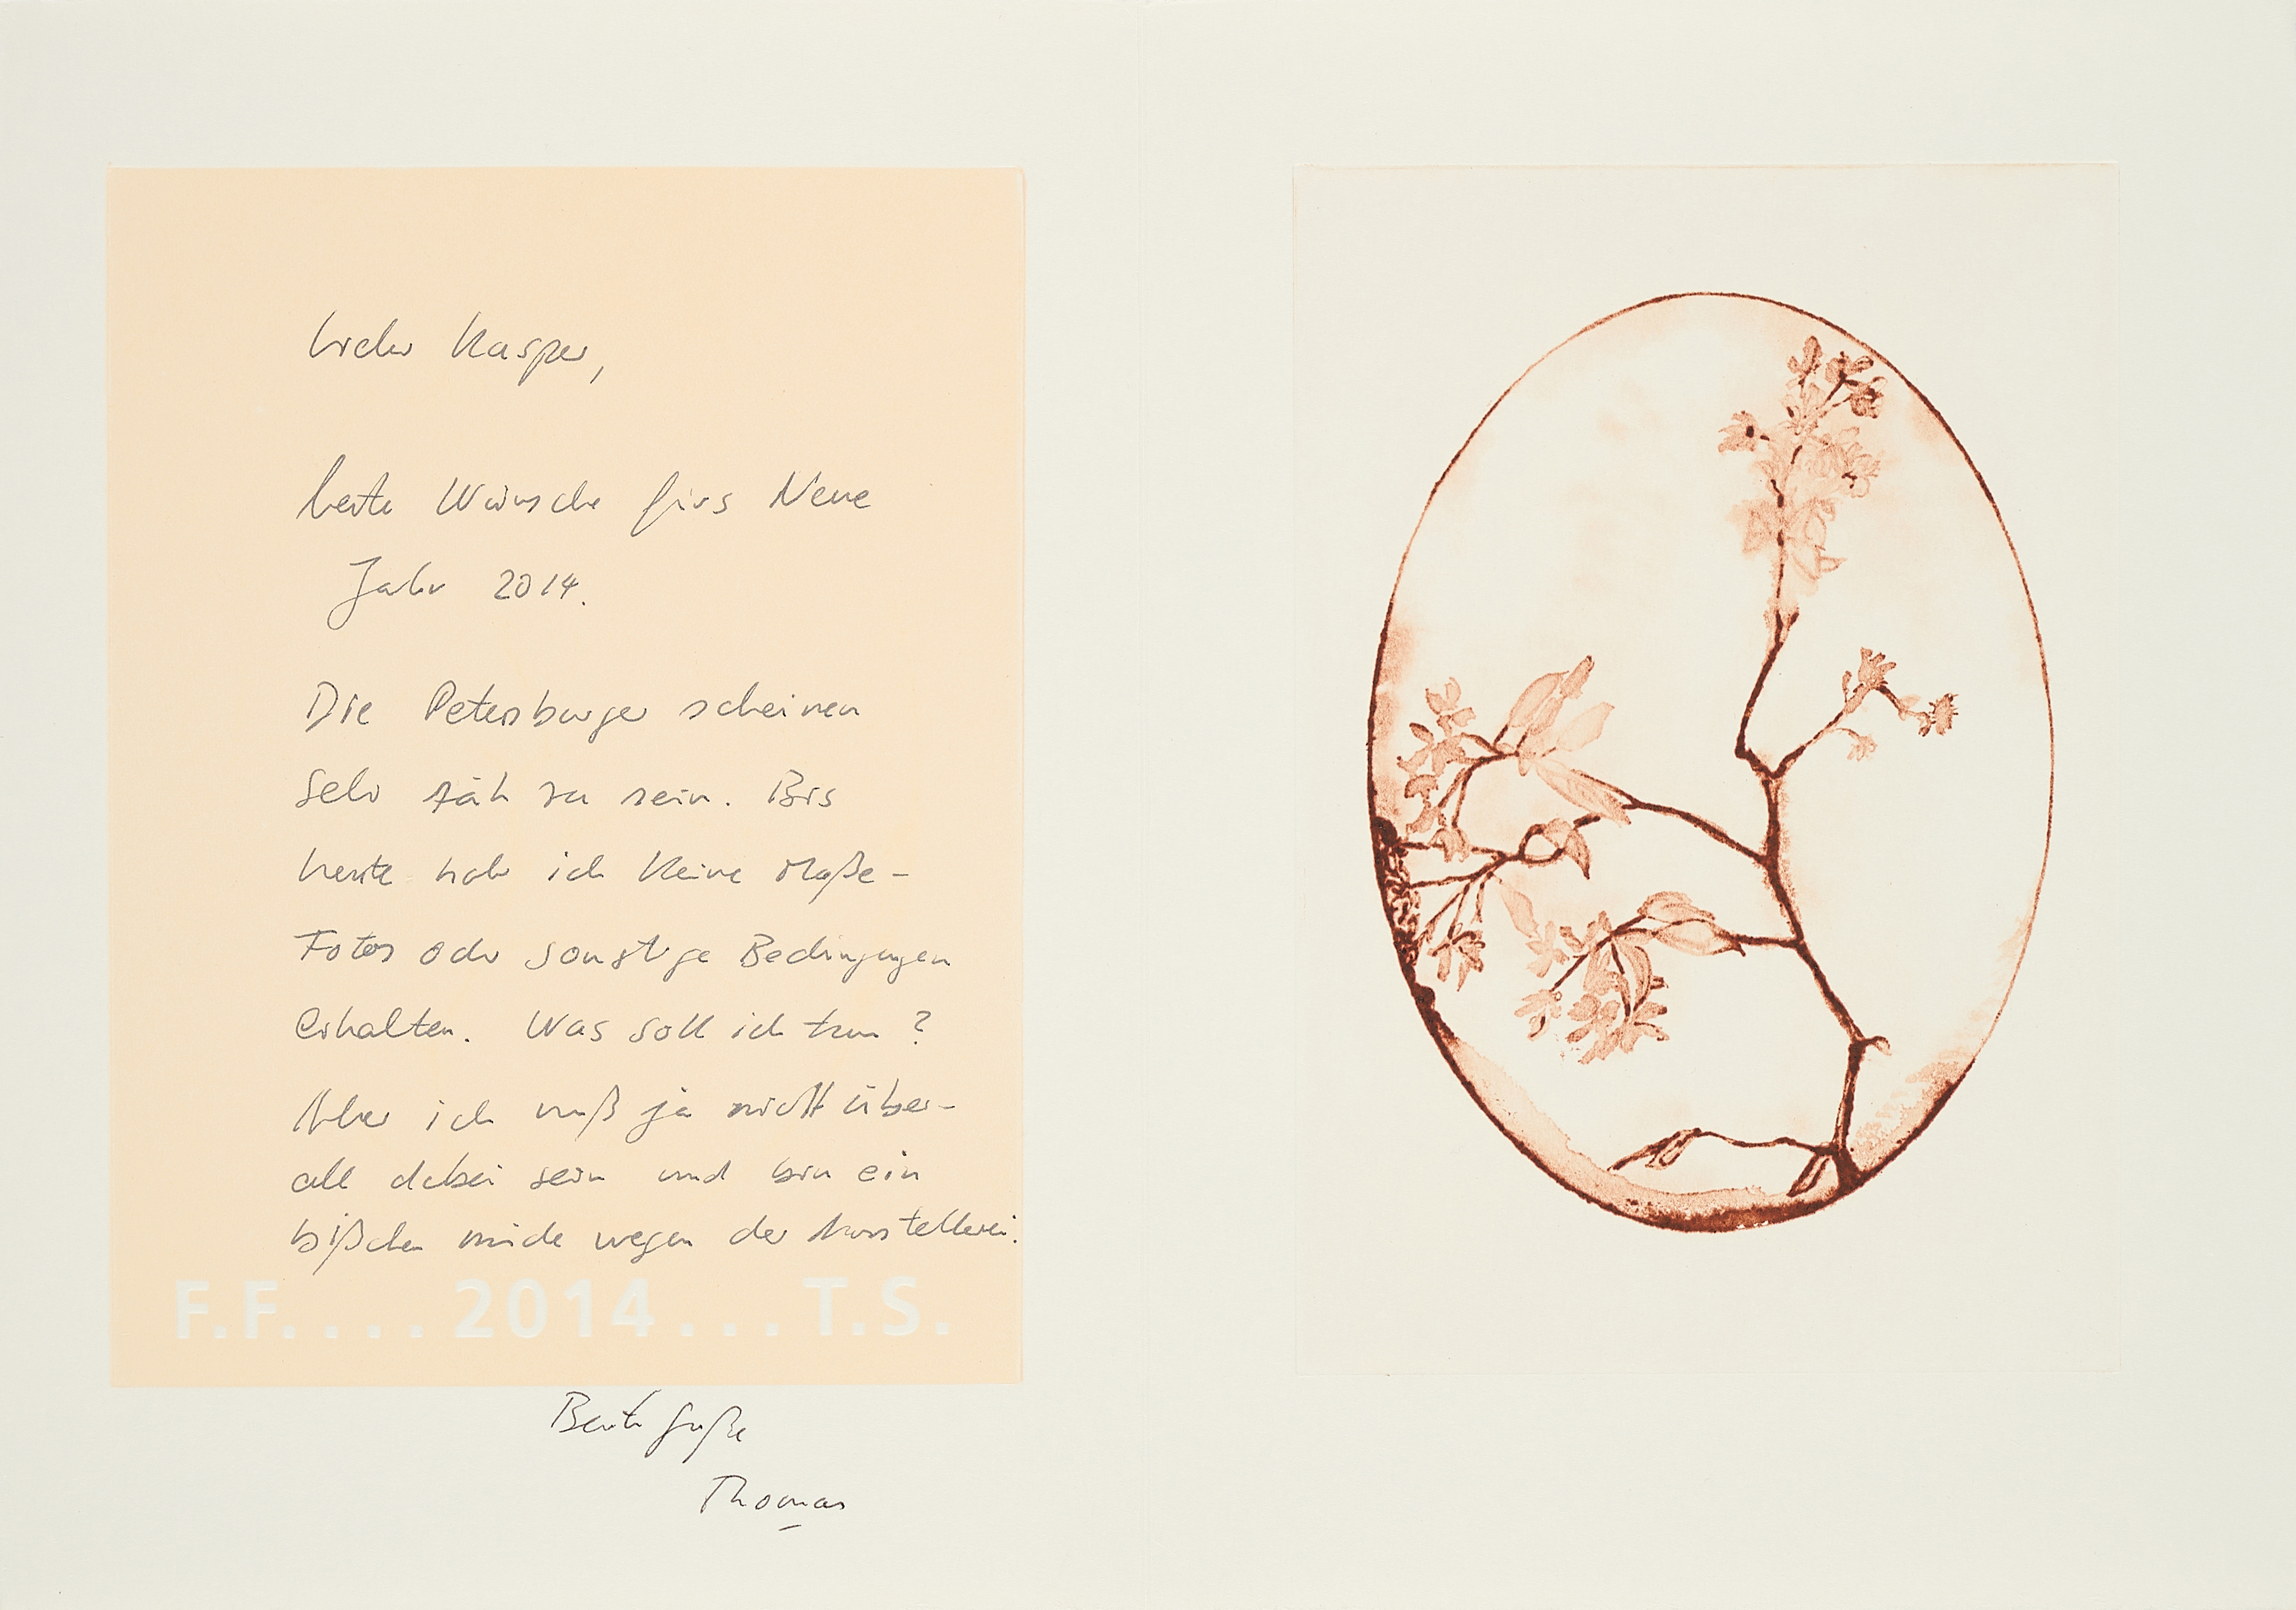 Lieber Kasper,
beste Wünsche fürs Neue
Jahr 2014.
Die Petersburger scheinen
sehr zäh zu sein. Bis
heute hab ich keine Maße-
Fotos oder sonstige Bedingungen
erhalten. Was soll ich tun?
Aber ich muß ja nicht über-
all dabei sein und bin ein
bißchen müde wegen der Ausstellerei.
F.F....2014...T.S.
Beste Grüße
Thomas